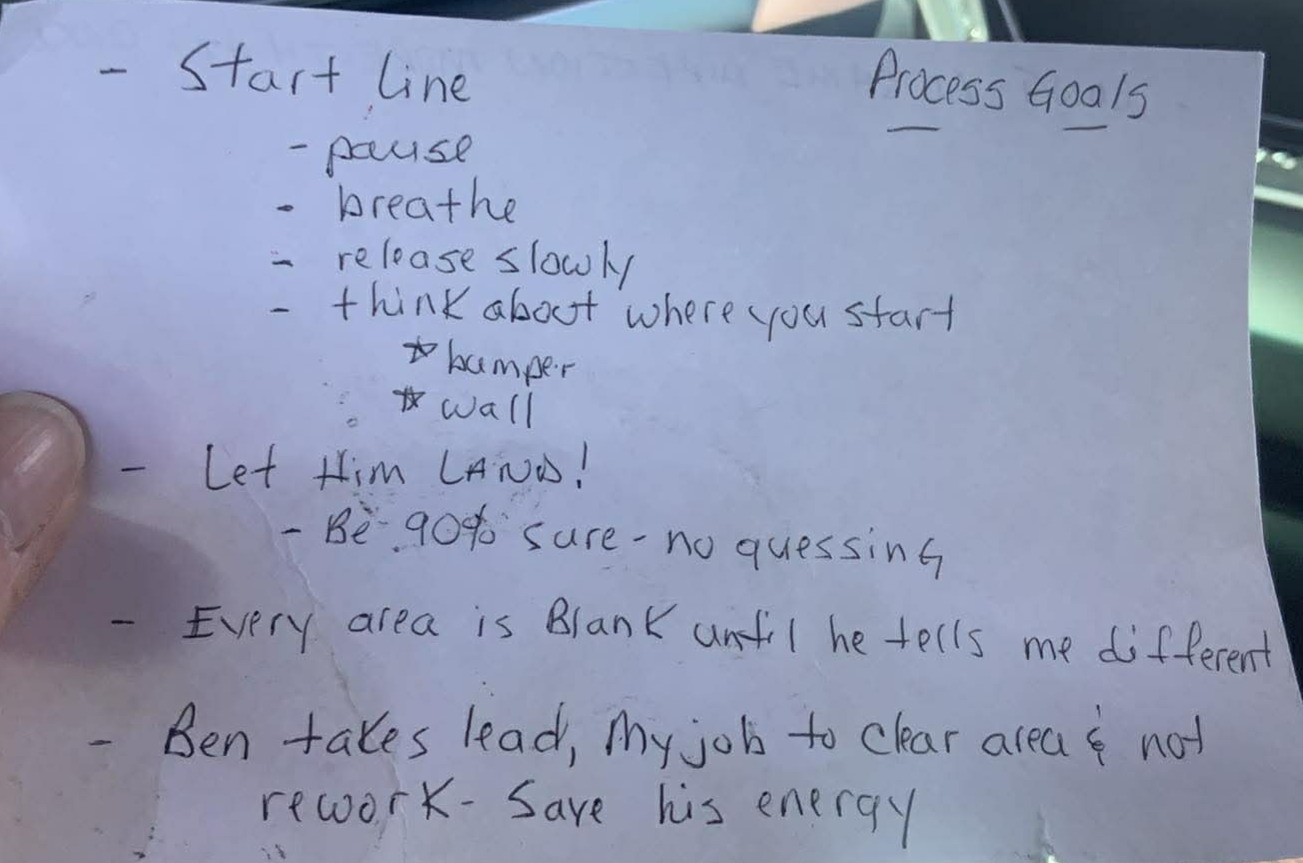 Process Goals
- Start line
- pause
- breathe
- release slowly
- think about where you start
* bumper
* wall
- Let Him LAND!
- Be 90% sure - no quessing
- Every area is Blank until he tells me different
- Ben takes lead, My job to clear area & not
rework - Save his energy